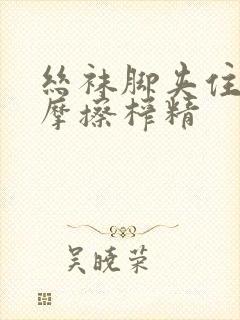 丝袜脚夹住
摩擦榨精
吴晓荣